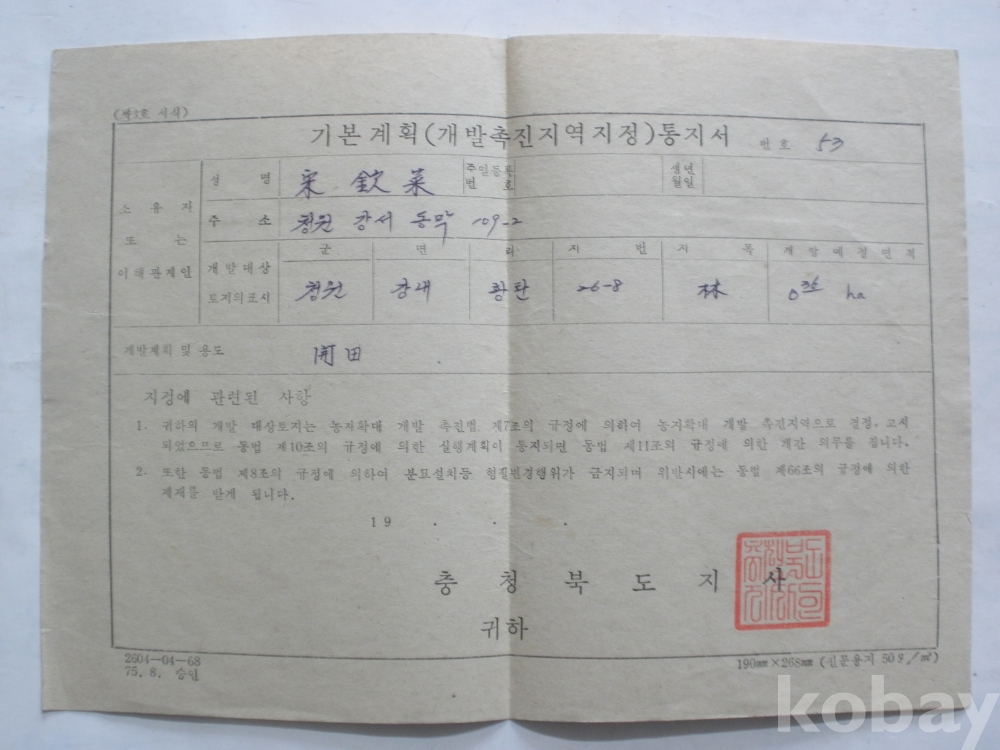 (제3호 서식)
기본계획(개발촉진지역지정)통지서 번호 53
소유자 또는 이해관계인
성 명 宋 欽 菜 주민등록번호 생년월일
주 소 청원 강서 동막 109-2
군 면 리 지번 지목 개발예정면적
개발대상 토지의표시 청원 강내 황탄 26-8 林 ha
개발계획 및 용도 開田
지정에 관련된 사항
1. 귀하의 개발 대상토지는 농지확대 개발 촉진법 제7조의 규정에 의하여 농지확대 개발 촉진지역으로 결정, 고시
되었으므로 동법 제10조의 규정에 의한 실행계획이 통지되면 동법 제11조의 규정에 의한 개간 의무를 집니다.
2. 또한 동법 제8조의 규정에 의하여 분묘설치등 형질변경행위가 금지되며 위반시에는 동법 제66조의 규정에 의한
제재를 받게 됩니다.
19 . . .
충청북도지사
귀하
2604-04-68
75. 8. 승인
190mm×268mm (신문용지 50g/㎡)
kobay